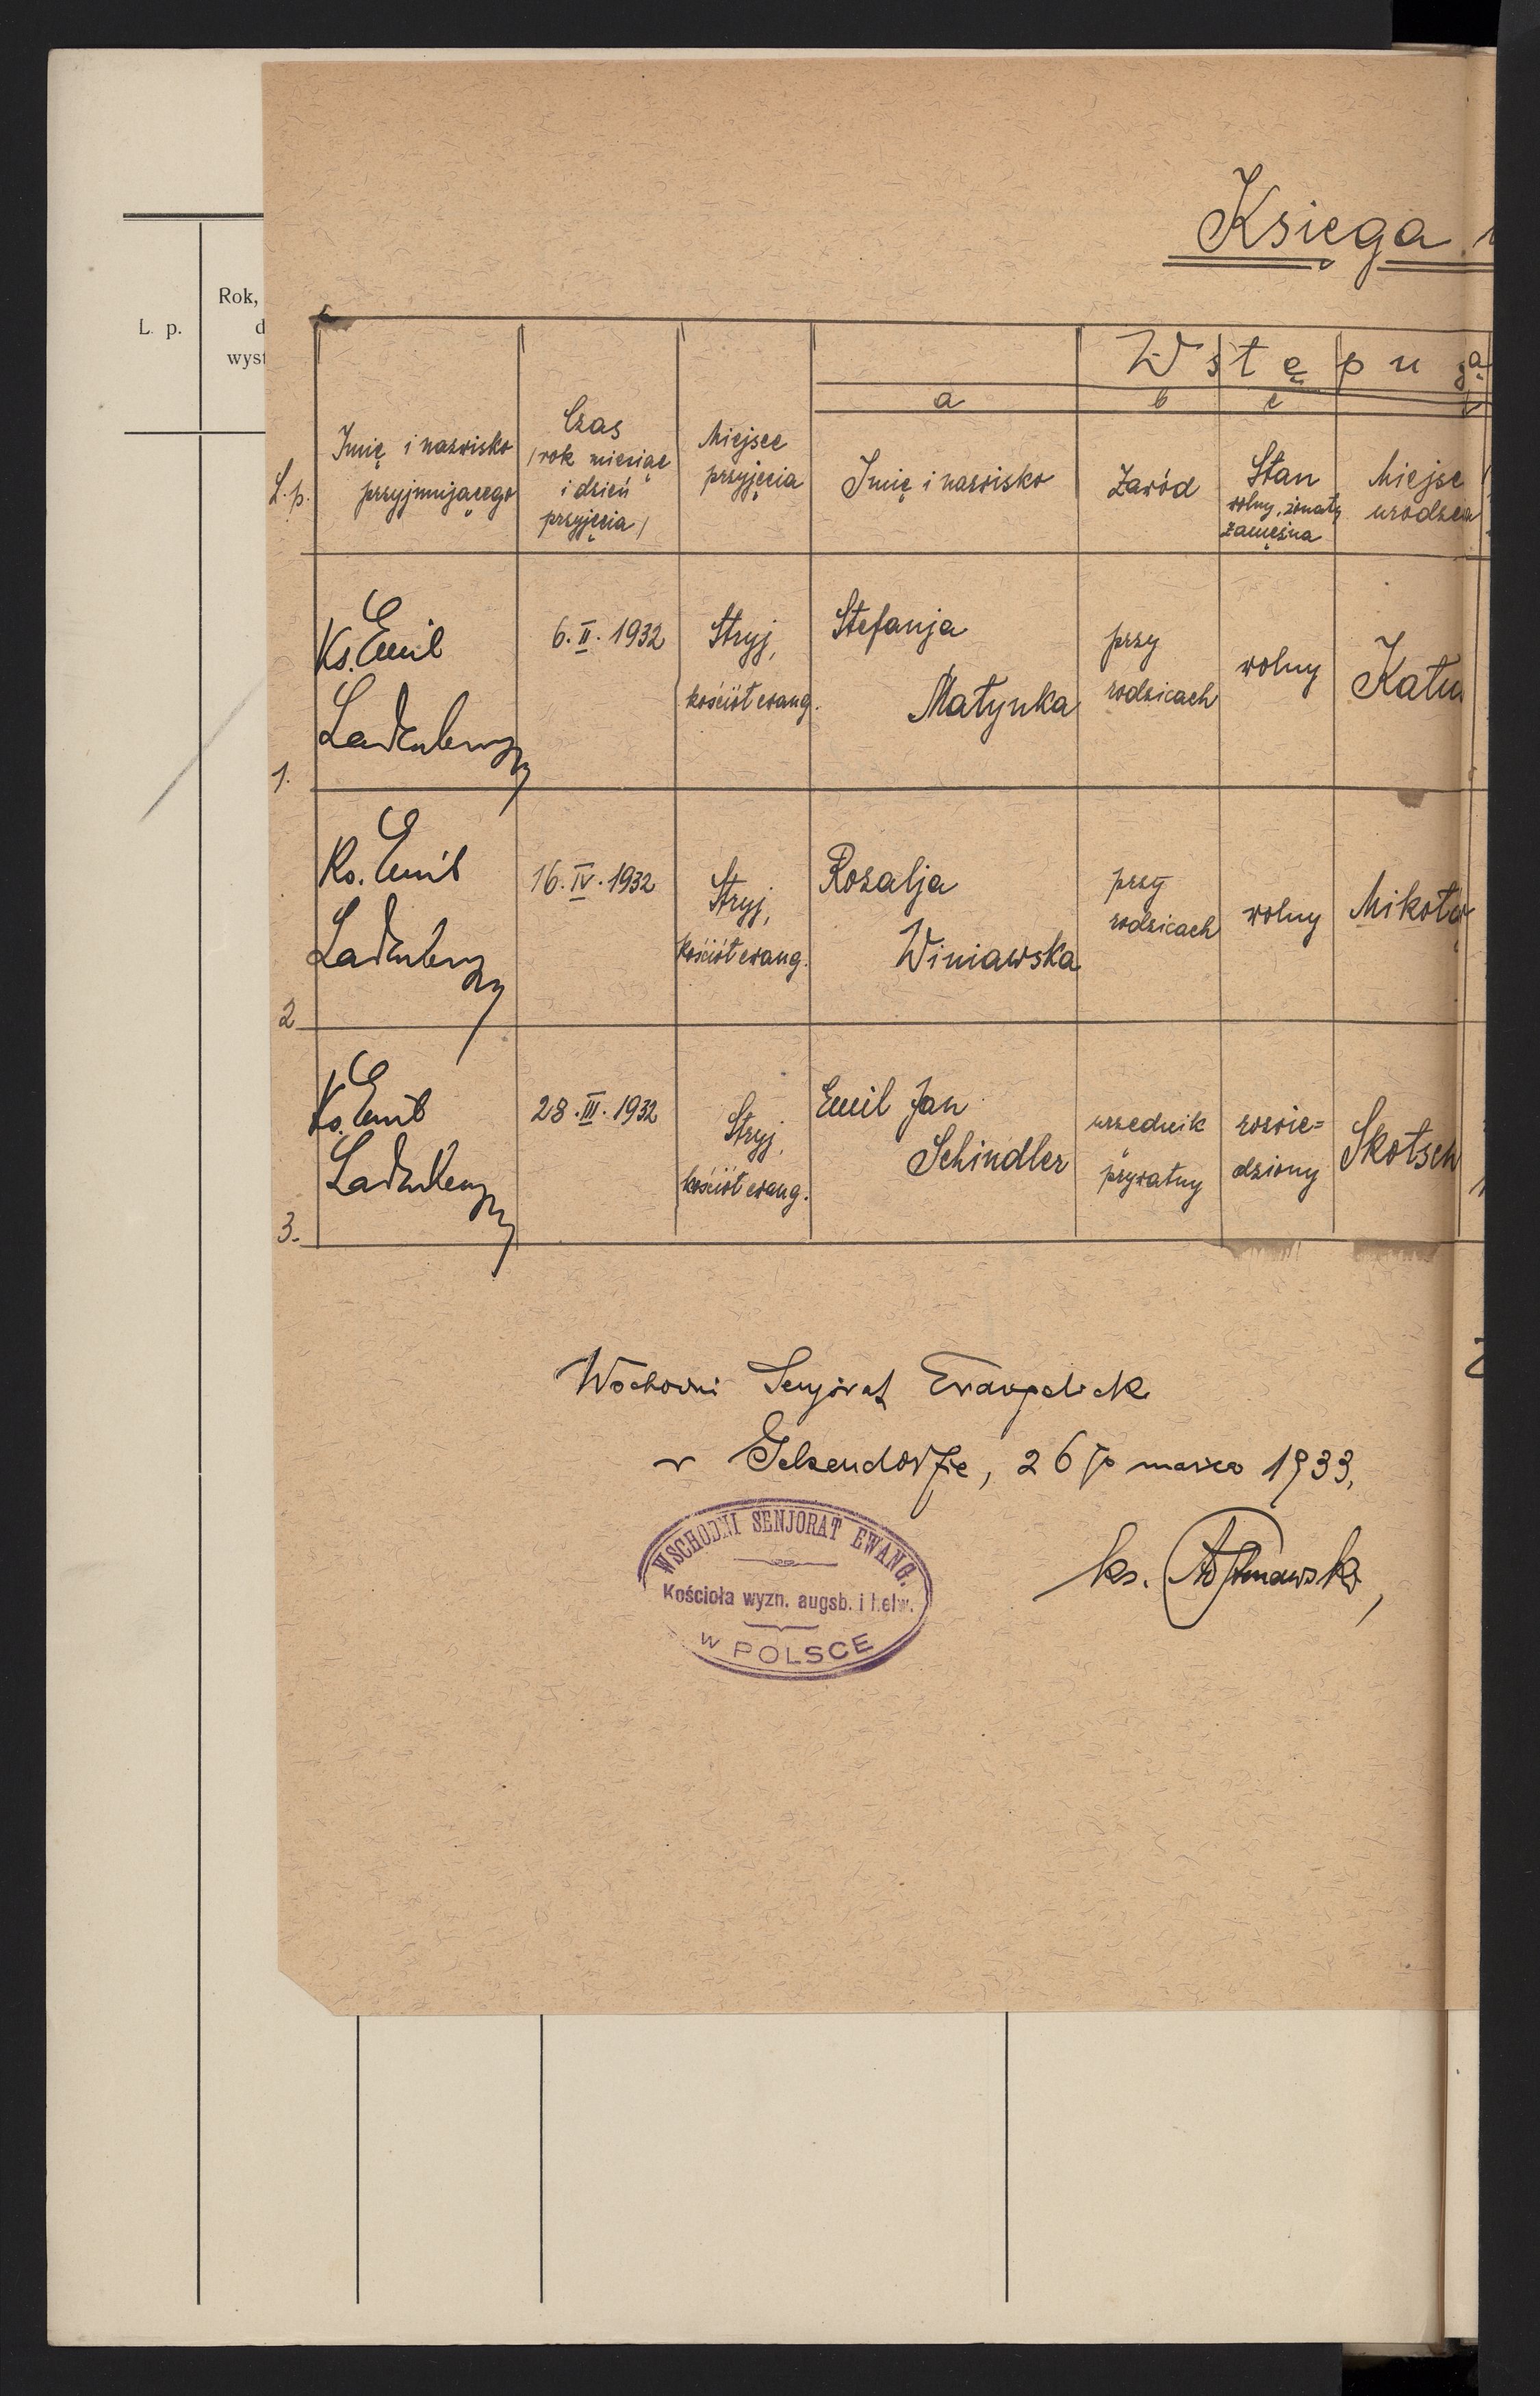 Księga
L. p.
Rok,
d
wyst
L.p.
Imię i nazwisko
przyjmującego
Czas
/rok miesiąc
i dzień
przyjęcia/
Miejsce
przyjęcia
Wstępują
a
b
c
Imię i nazwisko
Zawód
Stan
wolny, żonaty
zamężna
Miejsc
urodzen
1.
Ks. Emil
Ladenberger
6. II. 1932
Stryj,
kościół ewang.
Stefanja
Matynka
przy
rodzicach
wolny
Katu
2
Ks. Emil
Ladenberger
16. IV. 1932
Stryj,
kościół ewang.
Rozalja
Winiawska
przy
rodzicach
wolny
Mikoła
3.
Ks. Emil
Ladenberger
28. III. 1932
Stryj,
kościół ewang.
Emil Jan
Schindler
urzędnik
prywatny
rozwie=
dziony
Skotsch
Wschodni Senjorat Ewangelick
w Gelsendorfie, 26 go marca 1933.
WSCHODNI SENJORAT EWANG.
Kościoła wyzn. augsb. i helw.
w POLSCE
ks.